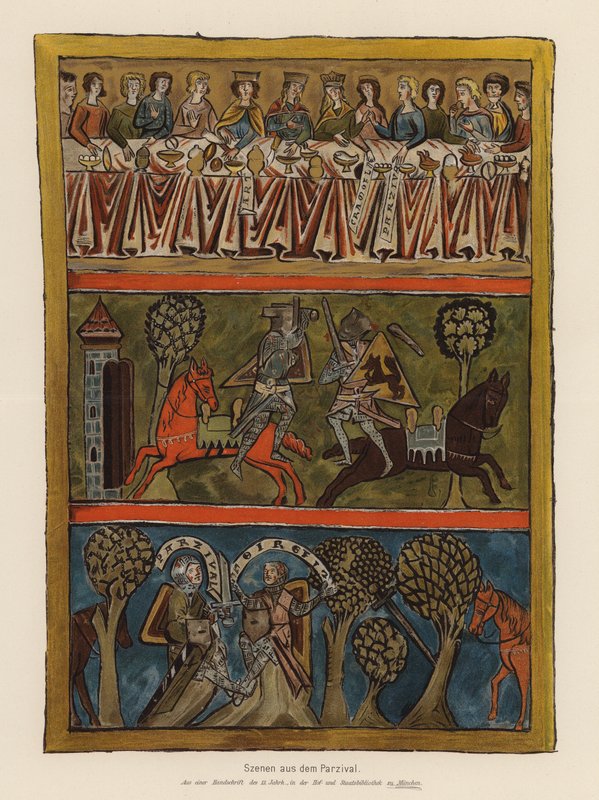 ART
PARZIVAL
Szenen aus dem Parzival.
Aus einer Handschrift des 13. Jahrh., in der Hof- und Staatsbibliothek zu München.